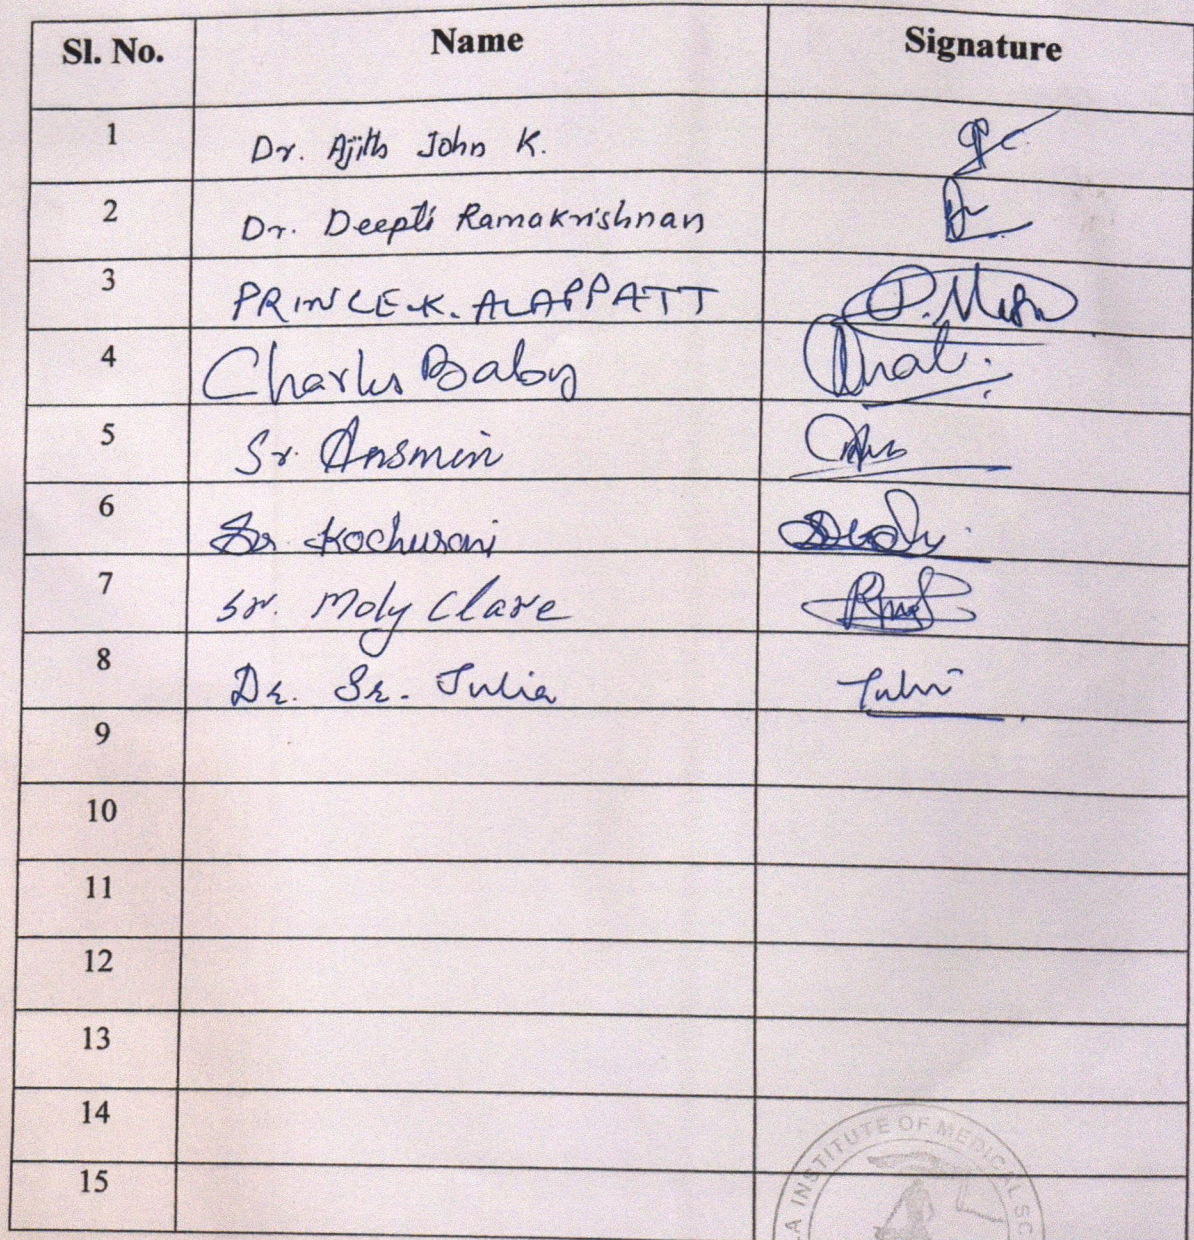 Sl. No. Name Signature
1 Dr. Ajith John K.
2 Dr. Deepti Ramakrishnan
3 PRINCE.K. ALAPPATT
4 Charles Baby
5 Sr. Ansmin
6 Sr Kochurani
7 Sr. Moly Clare
8 Dr. Sr. Julia
9
10
11
12
13
14
15
INSTITUTE OF MEDICAL SC